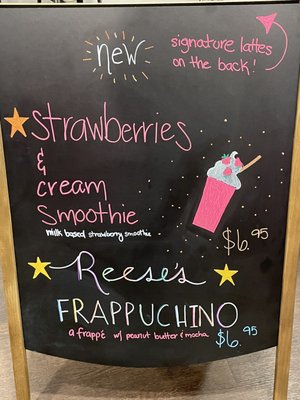 new
signature lattes
on the back!
strawberries
&
cream
smoothie
milk based strawberry smoothie
$6.95
Reese's
FRAPPUCHINO
a frappé w/ peanut butter & mocha $6.95